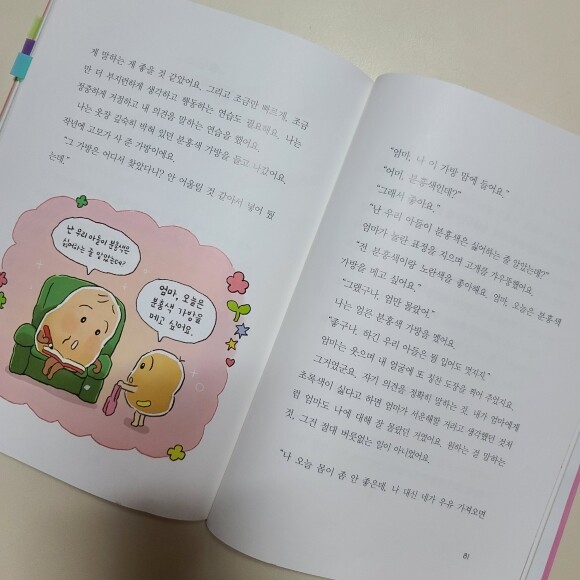 게 말하는 게 좋을 것 같았어요. 그리고 조금만 빠르게, 조금
만 더 부지런하게 생각하고 행동하는 연습도 필요해요. 나는
정중하게 거절하고 내 의견을 말하는 연습을 했어요.
나는 옷장 깊숙히 박혀 있던 분홍색 가방을 들고 나갔어요.
작년에 고모가 사 준 가방이에요.
"그 가방은 어디서 찾았다니? 안 어울릴 것 같아서 넣어 뒀
는데."
난 우리 아들이 분홍색은
싫어하는 줄 알았는데?
엄마, 오늘은
분홍색 가방을
메고 싶어요.
"엄마, 나 이 가방 맘에 들어요."
"어머, 분홍색인데?"
"그래서 좋아요."
"난 우리 아들이 분홍색은 싫어하는 줄 알았는데?"
엄마가 놀란 표정을 지으며 고개를 갸우뚱했어요.
"전 분홍색이랑 노란색을 좋아해요. 엄마, 오늘은 분홍색
가방을 메고 싶어요."
"그랬구나, 엄만 몰랐어."
나는 얼른 분홍색 가방을 멨어요.
"좋구나. 하긴 우리 아들은 뭘 입어도 멋지지."
엄마는 웃으며 내 얼굴에 또 칭찬 도장을 찍어 주었지요.
그거였군요. 자기 의견을 정확히 말하는 것. 내가 엄마에게
초록색이 싫다고 하면 엄마가 서운해할 거라고 생각했던 것처
럼 엄마도 나에 대해 잘 몰랐던 거였어요. 원하는 걸 말하는
것, 그건 절대 버릇없는 일이 아니었어요.
"나 오늘 몸이 좀 안 좋은데, 나 대신 네가 우유 가져오면
81